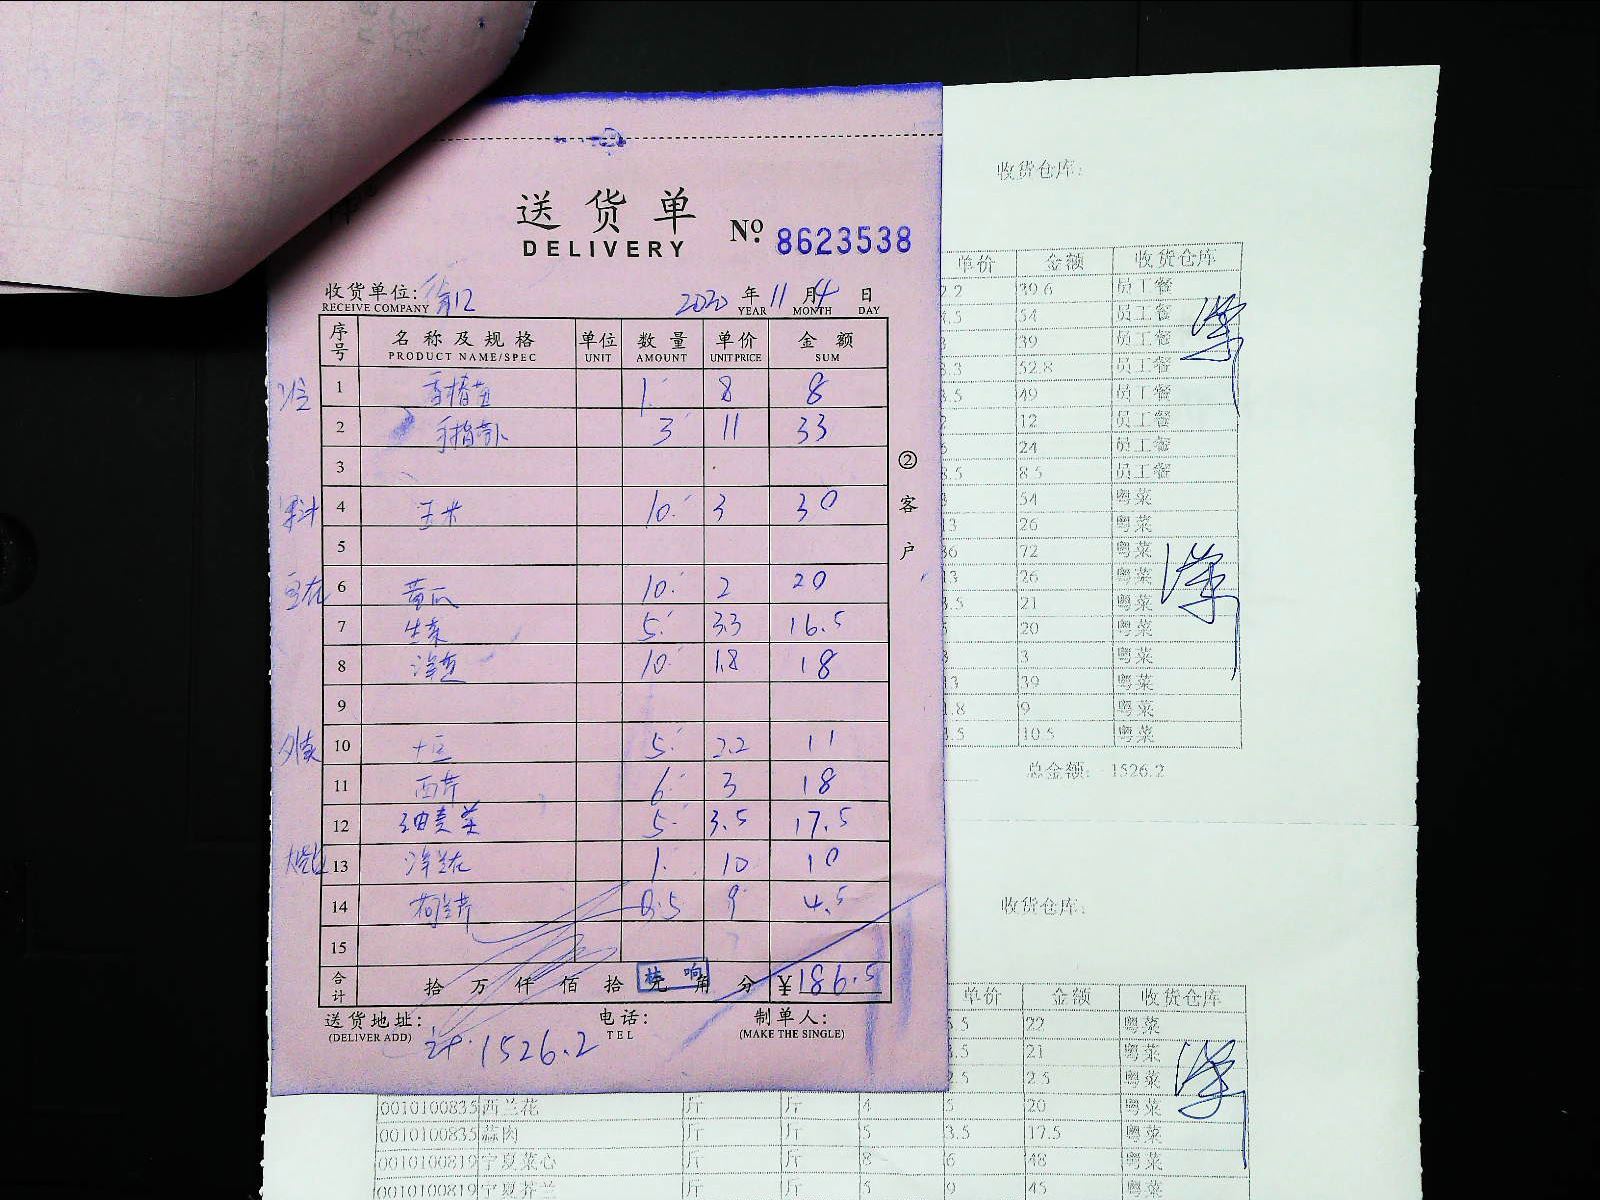 送货单
DELIVERY
No. 8623538
收货单位:
RECEIVE COMPANY
2020 年 11 月 4 日
YEAR MONTH DAY
序号 名称及规格 单位 数量 单价 金额
PRODUCT NAME/SPEC UNIT AMOUNT UNIT PRICE SUM
1 1 8 8
2 3 11 33
3
果汁 4 玉米 10 3 30
5
6 黄瓜 10 2 20
7 生菜 5 3.3 16.5
8 洋葱 10 1.8 18
9
外卖 10 土豆 5 2.2 11
11 西芹 6 3 18
12 油麦菜 5 3.5 17.5
13 1 10 10
14 0.5 9 4.5
15
合计 拾万仟佰拾元角分 ¥186.5
桂 响
送货地址:
(DELIVER ADD)
电话:
TEL
制单人:
(MAKE THE SINGLE)
计 1526.2
②客户
收货仓库:
单价 金额 收货仓库
2.2 39.6 员工餐
.5 54 员工餐
39 员工餐
.3 52.8 员工餐
.5 49 员工餐
2 12 员工餐
24 员工餐
.5 8.5 员工餐
54 粤菜
13 26 粤菜
36 72 粤菜
13 26 粤菜
.5 21 粤菜
20 粤菜
3 粤菜
13 39 粤菜
.8 9 粤菜
.5 10.5 粤菜
总金额: 1526.2
收货仓库:
单价 金额 收货仓库
5.5 22 粤菜
.5 21 粤菜
2.5 2.5 粤菜
0010100835 西兰花 斤 斤 4 5 20 粤菜
0010100835 蒜肉 斤 斤 5 3.5 17.5 粤菜
0010100819 宁夏菜心 斤 斤 8 6 48 粤菜
0010100819 宁夏芥兰 斤 斤 5 9 45 粤菜